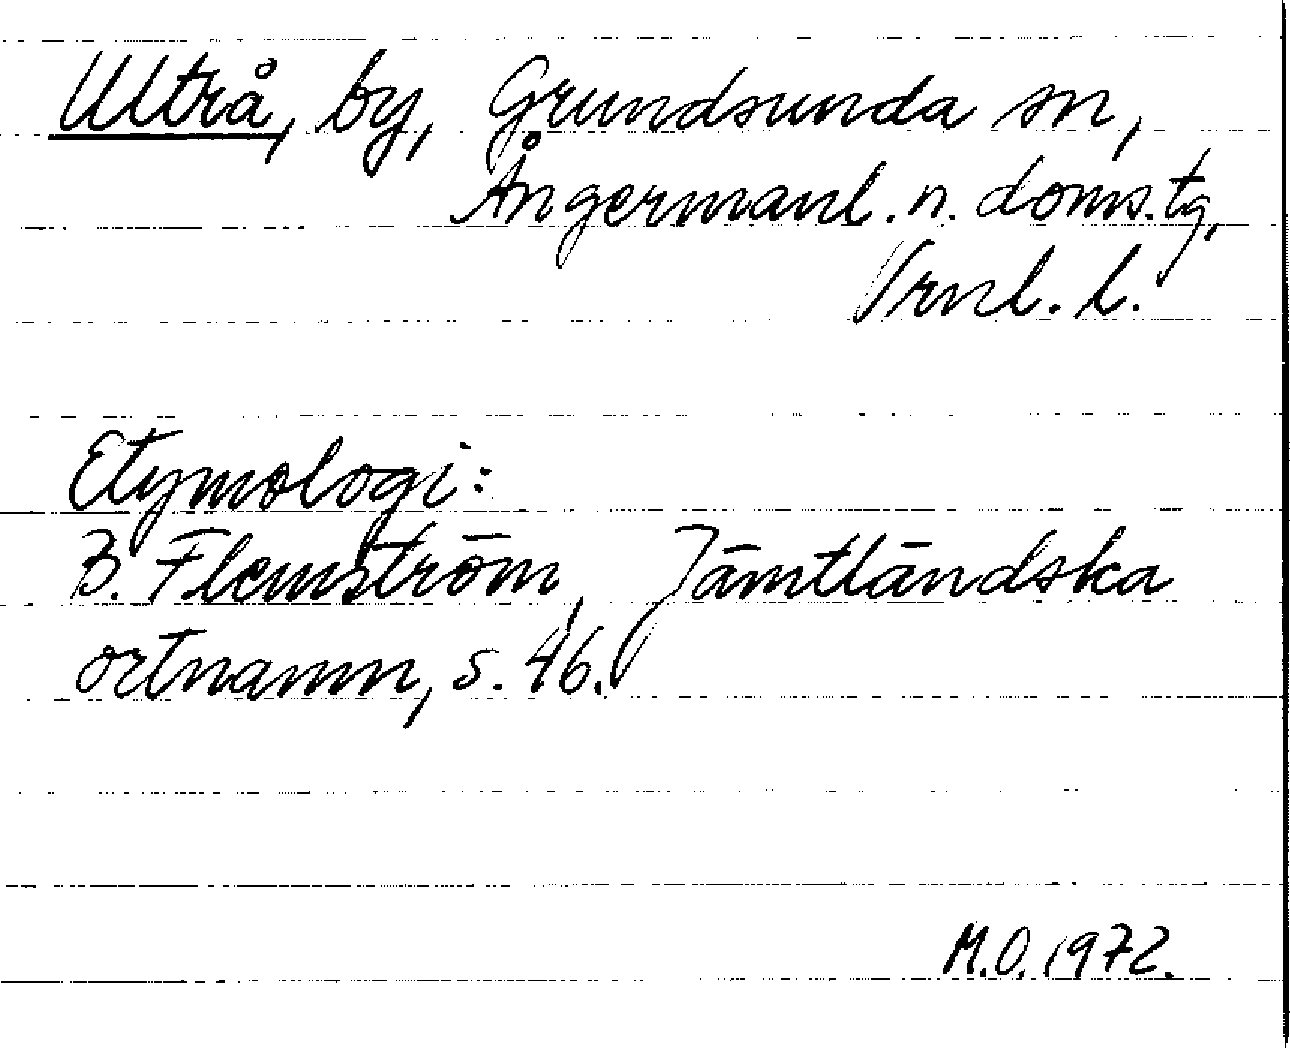 Ultrå, by, Grundsunda sn,
Ångermanl. n. doms.tg,
Vrnl. l.
Etymologi:
B. Flemström, Jämtländska
ortnamn, s. 46.
M.O. 1972.